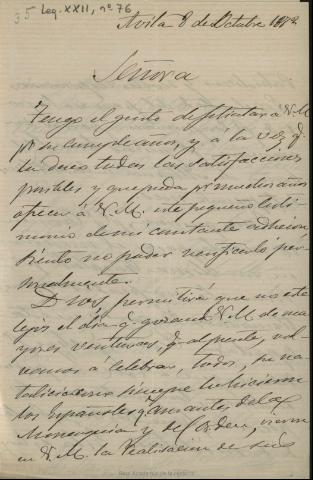 35 Leg. XXII, nº 76
Avila 8 de Octubre 187
Señora
Tengo el gusto de felicitar á V.M.
pr su cumpleaños, y á la vez q.
la deseo todas las satisfacciones
posibles y que pueda pr muchos años
ofrecer á V.M. este pequeño testi
monio de mi constante adhesion,
siento no poder verificarlo per
sonalmente.
Dios, permitirá que no este
lejos el dia q. gozando V.M. de ma
yores venturas, q. al presente, vol
vamos á celebrar, todos, su na
talicio como siempre lo hicieron
los Españoles, amantes de la
Monarquia y del orden, vieron
en V.M. la realizacion de sus
Real Academia de la Historia